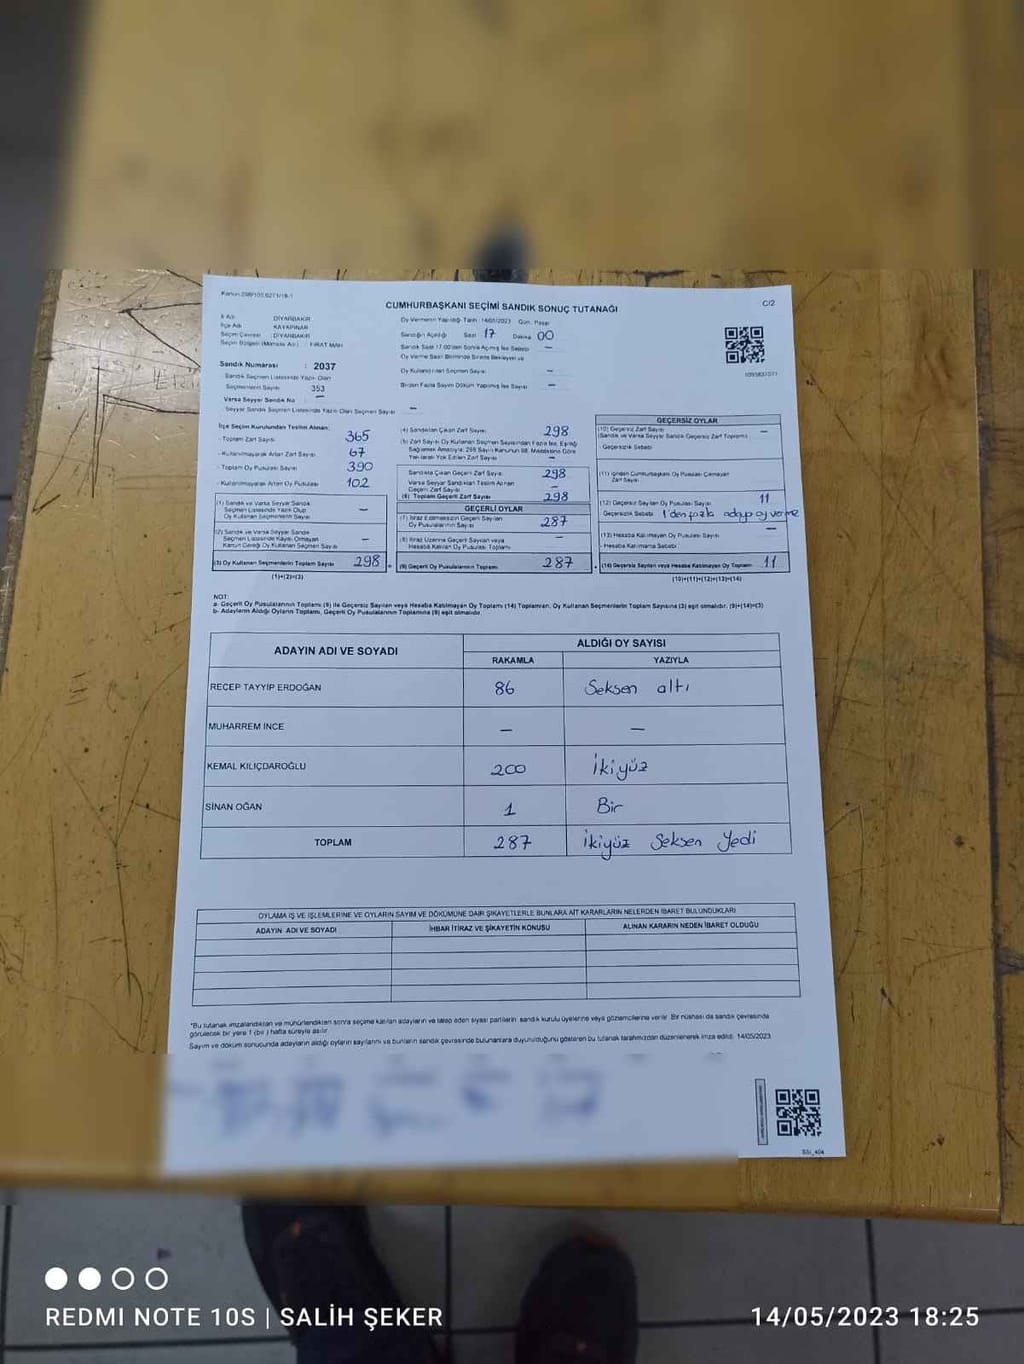 Kanun:298/105,6271/18-1
C/2
CUMHURBAŞKANI SEÇİMİ SANDIK SONUÇ TUTANAĞI
İl Adı DİYARBAKIR
İlçe Adı KAYAPINAR
Seçim Çevresi DİYARBAKIR
Seçim Bölgesi (Mahalle Adı) FIRAT MAH
Sandık Numarası : 2037
Sandık Seçmen Listesinde Yazılı Olan
Seçmenlerin Sayısı 353
Varsa Seyyar Sandık No —
Seyyar Sandık Seçmen Listesinde Yazılı Olan Seçmen Sayısı —
Oy Vermenin Yapıldığı Tarih 14/05/2023 Gün: Pazar
Sandığın Açıldığı Saat 17 Dakika 00
Sandık Saat 17.00'den Sonra Açılmış İse Sebebi —
Oy Verme Saati Bitiminde Sırada Bekleyen ve
Oy Kullandırılan Seçmen Sayısı —
Birden Fazla Sayım Döküm Yapılmış İse Sayısı —
İlçe Seçim Kurulundan Teslim Alınan:
- Toplam Zarf Sayısı 365
- Kullanılmayarak Artan Zarf Sayısı 67
- Toplam Oy Pusulası Sayısı 390
- Kullanılmayarak Artan Oy Pusulası 102
(1) Sandık ve Varsa Seyyar Sandık
Seçmen Listesinde Yazılı Olup
Oy Kullanan Seçmenlerin Sayısı —
(2) Sandık ve Varsa Seyyar Sandık
Seçmen Listesinde Kaydı Olmayan
Kanun Gereği Oy Kullanan Seçmen Sayısı —
(3) Oy Kullanan Seçmenlerin Toplam Sayısı 298
(1)+(2)=(3)
(4) Sandıktan Çıkan Zarf Sayısı 298
(5) Zarf Sayısı Oy Kullanan Seçmen Sayısından Fazla İse, Eşitliği
Sağlamak Amacıyla; 298 Sayılı Kanunun 98. Maddesine Göre
Yakılarak Yok Edilen Zarf Sayısı —
Sandıkta Çıkan Geçerli Zarf Sayısı 298
Varsa Seyyar Sandıktan Teslim Alınan
Geçerli Zarf Sayısı —
(6) Toplam Geçerli Zarf Sayısı 298
GEÇERLİ OYLAR
(7) İtiraz Edilmeksizin Geçerli Sayılan
Oy Pusulalarının Sayısı 287
(8) İtiraz Üzerine Geçerli Sayılan veya
Hesaba Katılan Oy Pusulası Toplamı —
(9) Geçerli Oy Pusulalarının Toplamı 287
GEÇERSİZ OYLAR
(10) Geçersiz Zarf Sayısı
(Sandık ve Varsa Seyyar Sandık Geçersiz Zarf Toplamı) —
Geçersizlik Sebebi
(11) İçinden Cumhurbaşkanı Oy Pusulası Çıkmayan
Zarf Sayısı
(12) Geçersiz Sayılan Oy Pusulası Sayısı 11
Geçersizlik Sebebi 1'den fazla adaya oy verme
(13) Hesaba Katılmayan Oy Pusulası Sayısı —
- Hesaba Katılmama Sebebi
(14) Geçersiz Sayılan veya Hesaba Katılmayan Oy Toplamı 11
(10)+(11)+(12)+(13)=(14)
NOT:
a- Geçerli Oy Pusulalarının Toplamı (9) ile Geçersiz Sayılan veya Hesaba Katılmayan Oy Toplamı (14) Toplamları, Oy Kullanan Seçmenlerin Toplam Sayısına (3) eşit olmalıdır. (9)+(14)=(3)
b- Adayların Aldığı Oyların Toplamı, Geçerli Oy Pusulalarının Toplamına (9) eşit olmalıdır.
ADAYIN ADI VE SOYADI ALDIĞI OY SAYISI
RAKAMLA YAZIYLA
RECEP TAYYİP ERDOĞAN 86 Seksen altı
MUHARREM İNCE — —
KEMAL KILIÇDAROĞLU 200 İkiyüz
SİNAN OĞAN 1 Bir
TOPLAM 287 İkiyüz Seksen Yedi
OYLAMA İŞ VE İŞLEMLERİNE VE OYLARIN SAYIM VE DÖKÜMÜNE DAİR ŞİKAYETLERLE BUNLARA AİT KARARLARIN NELERDEN İBARET BULUNDUKLARI
ADAYIN ADI VE SOYADI İHBAR İTİRAZ VE ŞİKAYETİN KONUSU ALINAN KARARIN NEDEN İBARET OLDUĞU
*Bu tutanak imzalandıktan ve mühürlendikten sonra seçime katılan adayların ve talep eden siyasi partilerin sandık kurulu üyelerine veya gözlemcilerine verilir. Bir nüshası da sandık çevresinde
görülecek bir yere 1 (bir) hafta süreyle asılır.
Sayım ve döküm sonucunda adayların aldığı oyların sayılarını ve bunların sandık çevresinde bulunanlara duyurulduğunu gösteren bu tutanak tarafımızdan düzenlenerek imza edildi. 14/05/2023
REDMI NOTE 10S | SALİH ŞEKER
14/05/2023 18:25